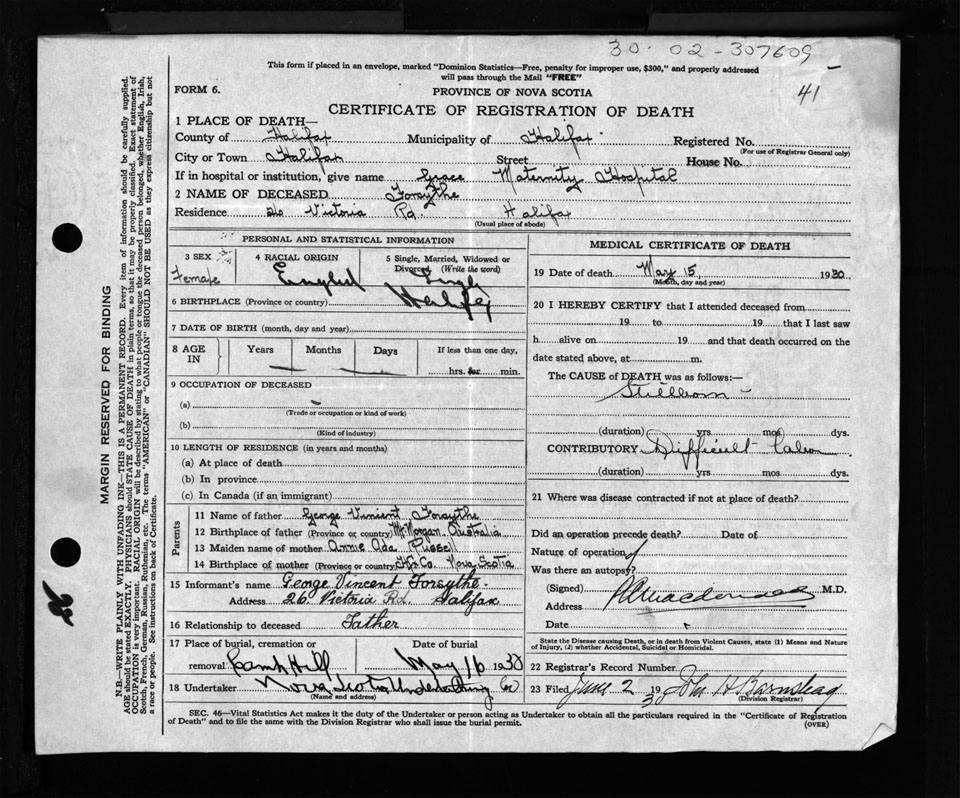 30-02-307609
41
This form if placed in an envelope, marked "Dominion Statistics—Free, penalty for improper use, $300," and properly addressed
will pass through the Mail "FREE"
FORM 6.
PROVINCE OF NOVA SCOTIA
CERTIFICATE OF REGISTRATION OF DEATH
1 PLACE OF DEATH—
County of Halifax Municipality of Halifax Registered No.
(For use of Registrar General only)
City or Town Halifax Street House No.
If in hospital or institution, give name Grace Maternity Hospital
2 NAME OF DECEASED Forsythe
Residence 26 Victoria Rd. Halifax
(Usual place of abode)
PERSONAL AND STATISTICAL INFORMATION
3 SEX Female
4 RACIAL ORIGIN English
5 Single, Married, Widowed or Divorced (Write the word) Single
6 BIRTHPLACE (Province or country) Halifax
7 DATE OF BIRTH (month, day and year)
8 AGE IN Years Months Days If less than one day, hrs. or min.
9 OCCUPATION OF DECEASED
(a)
(Trade or occupation or kind of work)
(b)
(Kind of industry)
10 LENGTH OF RESIDENCE (in years and months)
(a) At place of death
(b) In province
(c) In Canada (if an immigrant)
Parents
11 Name of father George Vincent Forsythe
12 Birthplace of father (Province or country) Mt Morgan Australia
13 Maiden name of mother Annie Ada Russell
14 Birthplace of mother (Province or country) Hfx Co. Nova Scotia
15 Informant's name George Vincent Forsythe.
Address 26 Victoria Rd. Halifax
16 Relationship to deceased Father
17 Place of burial, cremation or removal Camp Hill Date of burial May 16 1930
18 Undertaker Nova Scotia Undertaking Co
(Name and address)
MEDICAL CERTIFICATE OF DEATH
19 Date of death May 15, 1930
(Month, day and year)
20 I HEREBY CERTIFY that I attended deceased from
19 to 19 that I last saw
h alive on 19 and that death occurred on the
date stated above, at m.
The CAUSE of DEATH was as follows:—
Stillborn
(duration) yrs mos dys.
CONTRIBUTORY Difficult labor
(duration) yrs mos dys.
21 Where was disease contracted if not at place of death?
Did an operation precede death? Date of
Nature of operation
Was there an autopsy?
(Signed) M.D.
Address
Date
State the Disease causing Death, or in death from Violent Causes, state (1) Means and Nature
of Injury, (2) whether Accidental, Suicidal or Homicidal.
22 Registrar's Record Number
23 Filed June 2 1930 John H Barnstead
(Division Registrar)
SEC. 46—Vital Statistics Act makes it the duty of the Undertaker or person acting as Undertaker to obtain all the particulars required in the "Certificate of Registration
of Death" and to file the same with the Division Registrar who shall issue the burial permit.
(OVER)
MARGIN RESERVED FOR BINDING
N.B.—WRITE PLAINLY WITH UNFADING INK—THIS IS A PERMANENT RECORD. Every item of information should be carefully supplied.
AGE should be stated EXACTLY. PHYSICIANS should STATE CAUSE OF DEATH in plain terms, so that it may be properly classified. Exact statement of
OCCUPATION is very important. RACIAL ORIGIN will be described by stating to what people or tongue the deceased person belonged, whether English, Irish,
Scotch, French, German, Russian, Ruthenian, etc. The terms "AMERICAN" or "CANADIAN" SHOULD NOT BE USED as they express citizenship but not
a race or people. See instructions on back of Certificate.
26